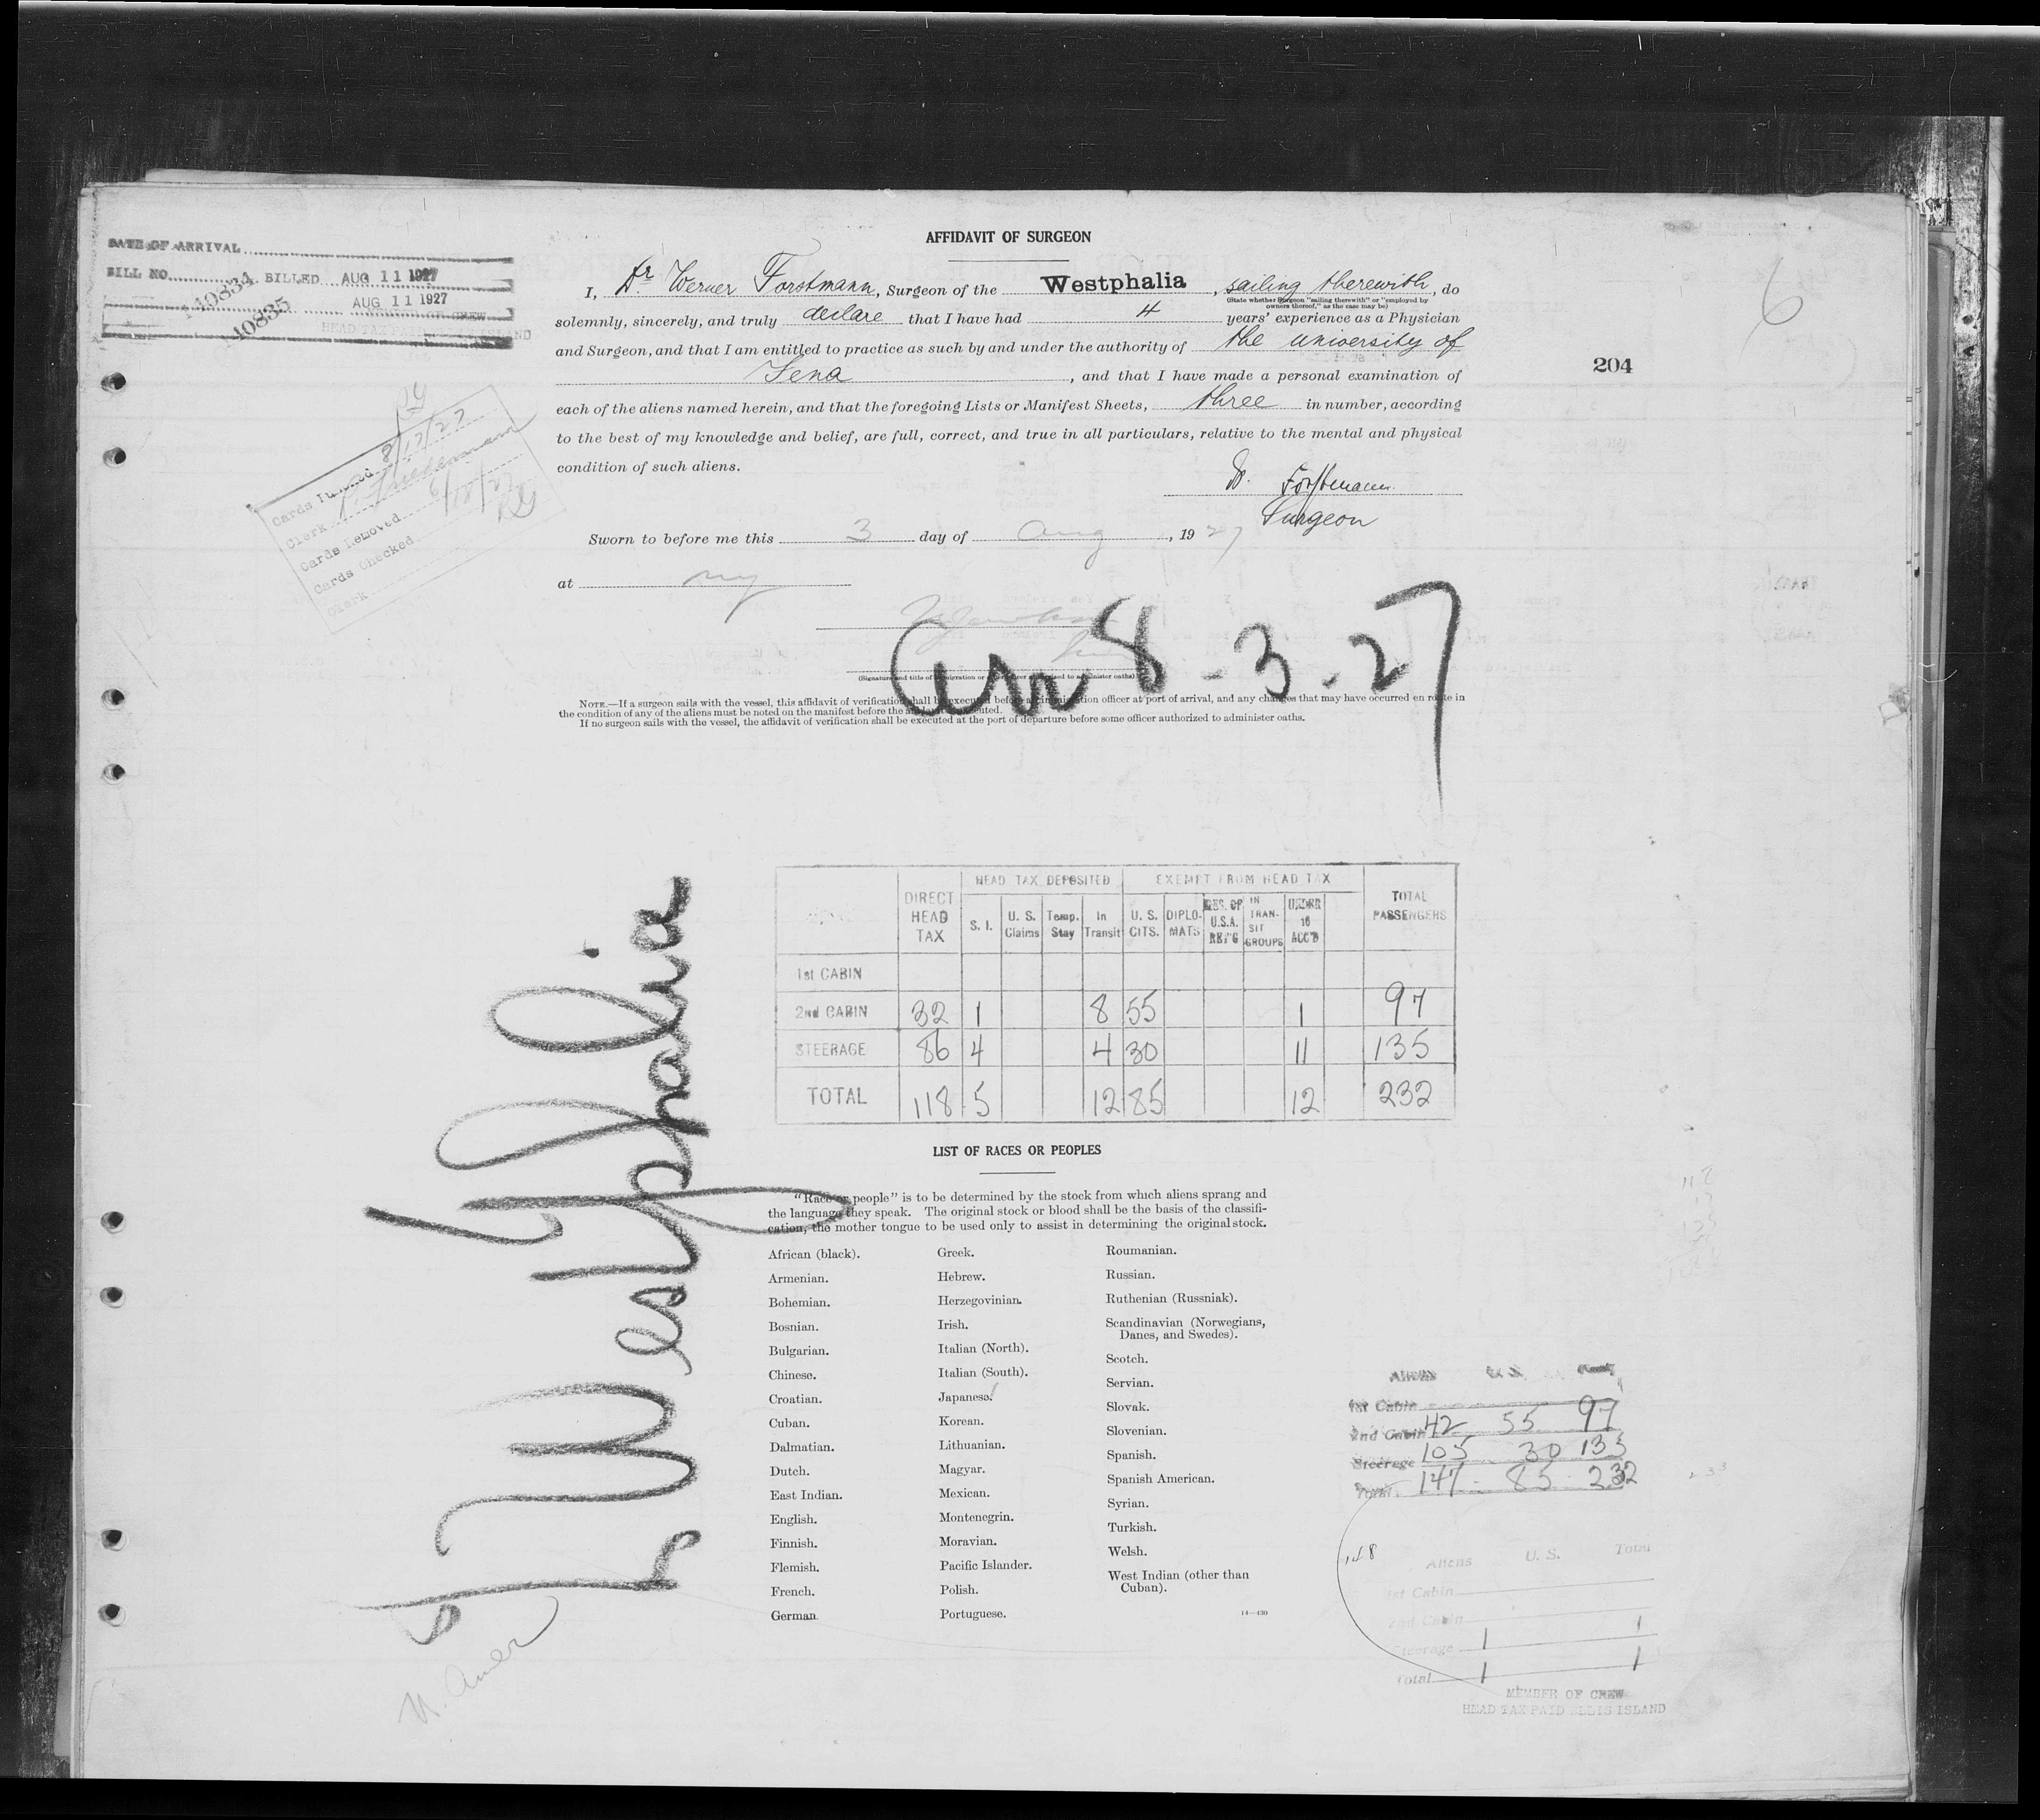 AFFIDAVIT OF SURGEON
DATE OF ARRIVAL
BILL NO. 140834 BILLED AUG 11 1927
140835 AUG 11 1927
MEMBER OF CREW
HEAD TAX PAID ELLIS ISLAND
I, Dr. Werner Forstmann, Surgeon of the Westphalia, sailing therewith, do
(State whether Surgeon "sailing therewith" or "employed by owners thereof," as the case may be)
solemnly, sincerely, and truly declare that I have had 4 years' experience as a Physician
and Surgeon, and that I am entitled to practice as such by and under the authority of the university of
Jena, and that I have made a personal examination of
each of the aliens named herein, and that the foregoing Lists or Manifest Sheets, three in number, according
to the best of my knowledge and belief, are full, correct, and true in all particulars, relative to the mental and physical
condition of such aliens.
W. Forstmann
Surgeon
6
204
Cards Punched 8/17/27
Clerk
Cards Removed
Cards Checked
Clerk
Sworn to before me this 3 day of Aug, 1927
at NY
Arr 8-3-27
(Signature and title of immigration or other officer authorized to administer oaths)
NOTE.—If a surgeon sails with the vessel, this affidavit of verification shall be executed before an immigration officer at port of arrival, and any changes that may have occurred en route in
the condition of any of the aliens must be noted on the manifest before the affidavit is executed.
If no surgeon sails with the vessel, the affidavit of verification shall be executed at the port of departure before some officer authorized to administer oaths.
DIRECT HEAD TAX HEAD TAX DEPOSITED EXEMPT FROM HEAD TAX TOTAL PASSENGERS
S. I. U. S. Claims Temp. Stay In Transit U. S. CITS. DIPLOMATS RES. OF U.S.A. RET'G IN TRANSIT GROUPS UNDER 16 ACC'D
1st CABIN
2nd CABIN 32 1 8 55 1 97
STEERAGE 86 4 4 30 11 135
TOTAL 118 5 12 85 12 232
Westphalia
LIST OF RACES OR PEOPLES
"Race or people" is to be determined by the stock from which aliens sprang and
the language they speak. The original stock or blood shall be the basis of the classifi-
cation, the mother tongue to be used only to assist in determining the original stock.
African (black).
Armenian.
Bohemian.
Bosnian.
Bulgarian.
Chinese.
Croatian.
Cuban.
Dalmatian.
Dutch.
East Indian.
English.
Finnish.
Flemish.
French.
German
Greek.
Hebrew.
Herzegovinian.
Irish.
Italian (North).
Italian (South).
Japanese.
Korean.
Lithuanian.
Magyar.
Mexican.
Montenegrin.
Moravian.
Pacific Islander.
Polish.
Portuguese.
Roumanian.
Russian.
Ruthenian (Russniak).
Scandinavian (Norwegians,
Danes, and Swedes).
Scotch.
Servian.
Slovak.
Slovenian.
Spanish.
Spanish American.
Syrian.
Turkish.
Welsh.
West Indian (other than
Cuban).
14—430
Aliens U. S. Total
1st Cabin
2nd Cabin 42 55 97
Steerage 105 30 135
Total 147 85 232
233
148
Aliens U. S. Total
1st Cabin
2nd Cabin
Steerage 1 1
Total 1 1
MEMBER OF CREW
HEAD TAX PAID ELLIS ISLAND